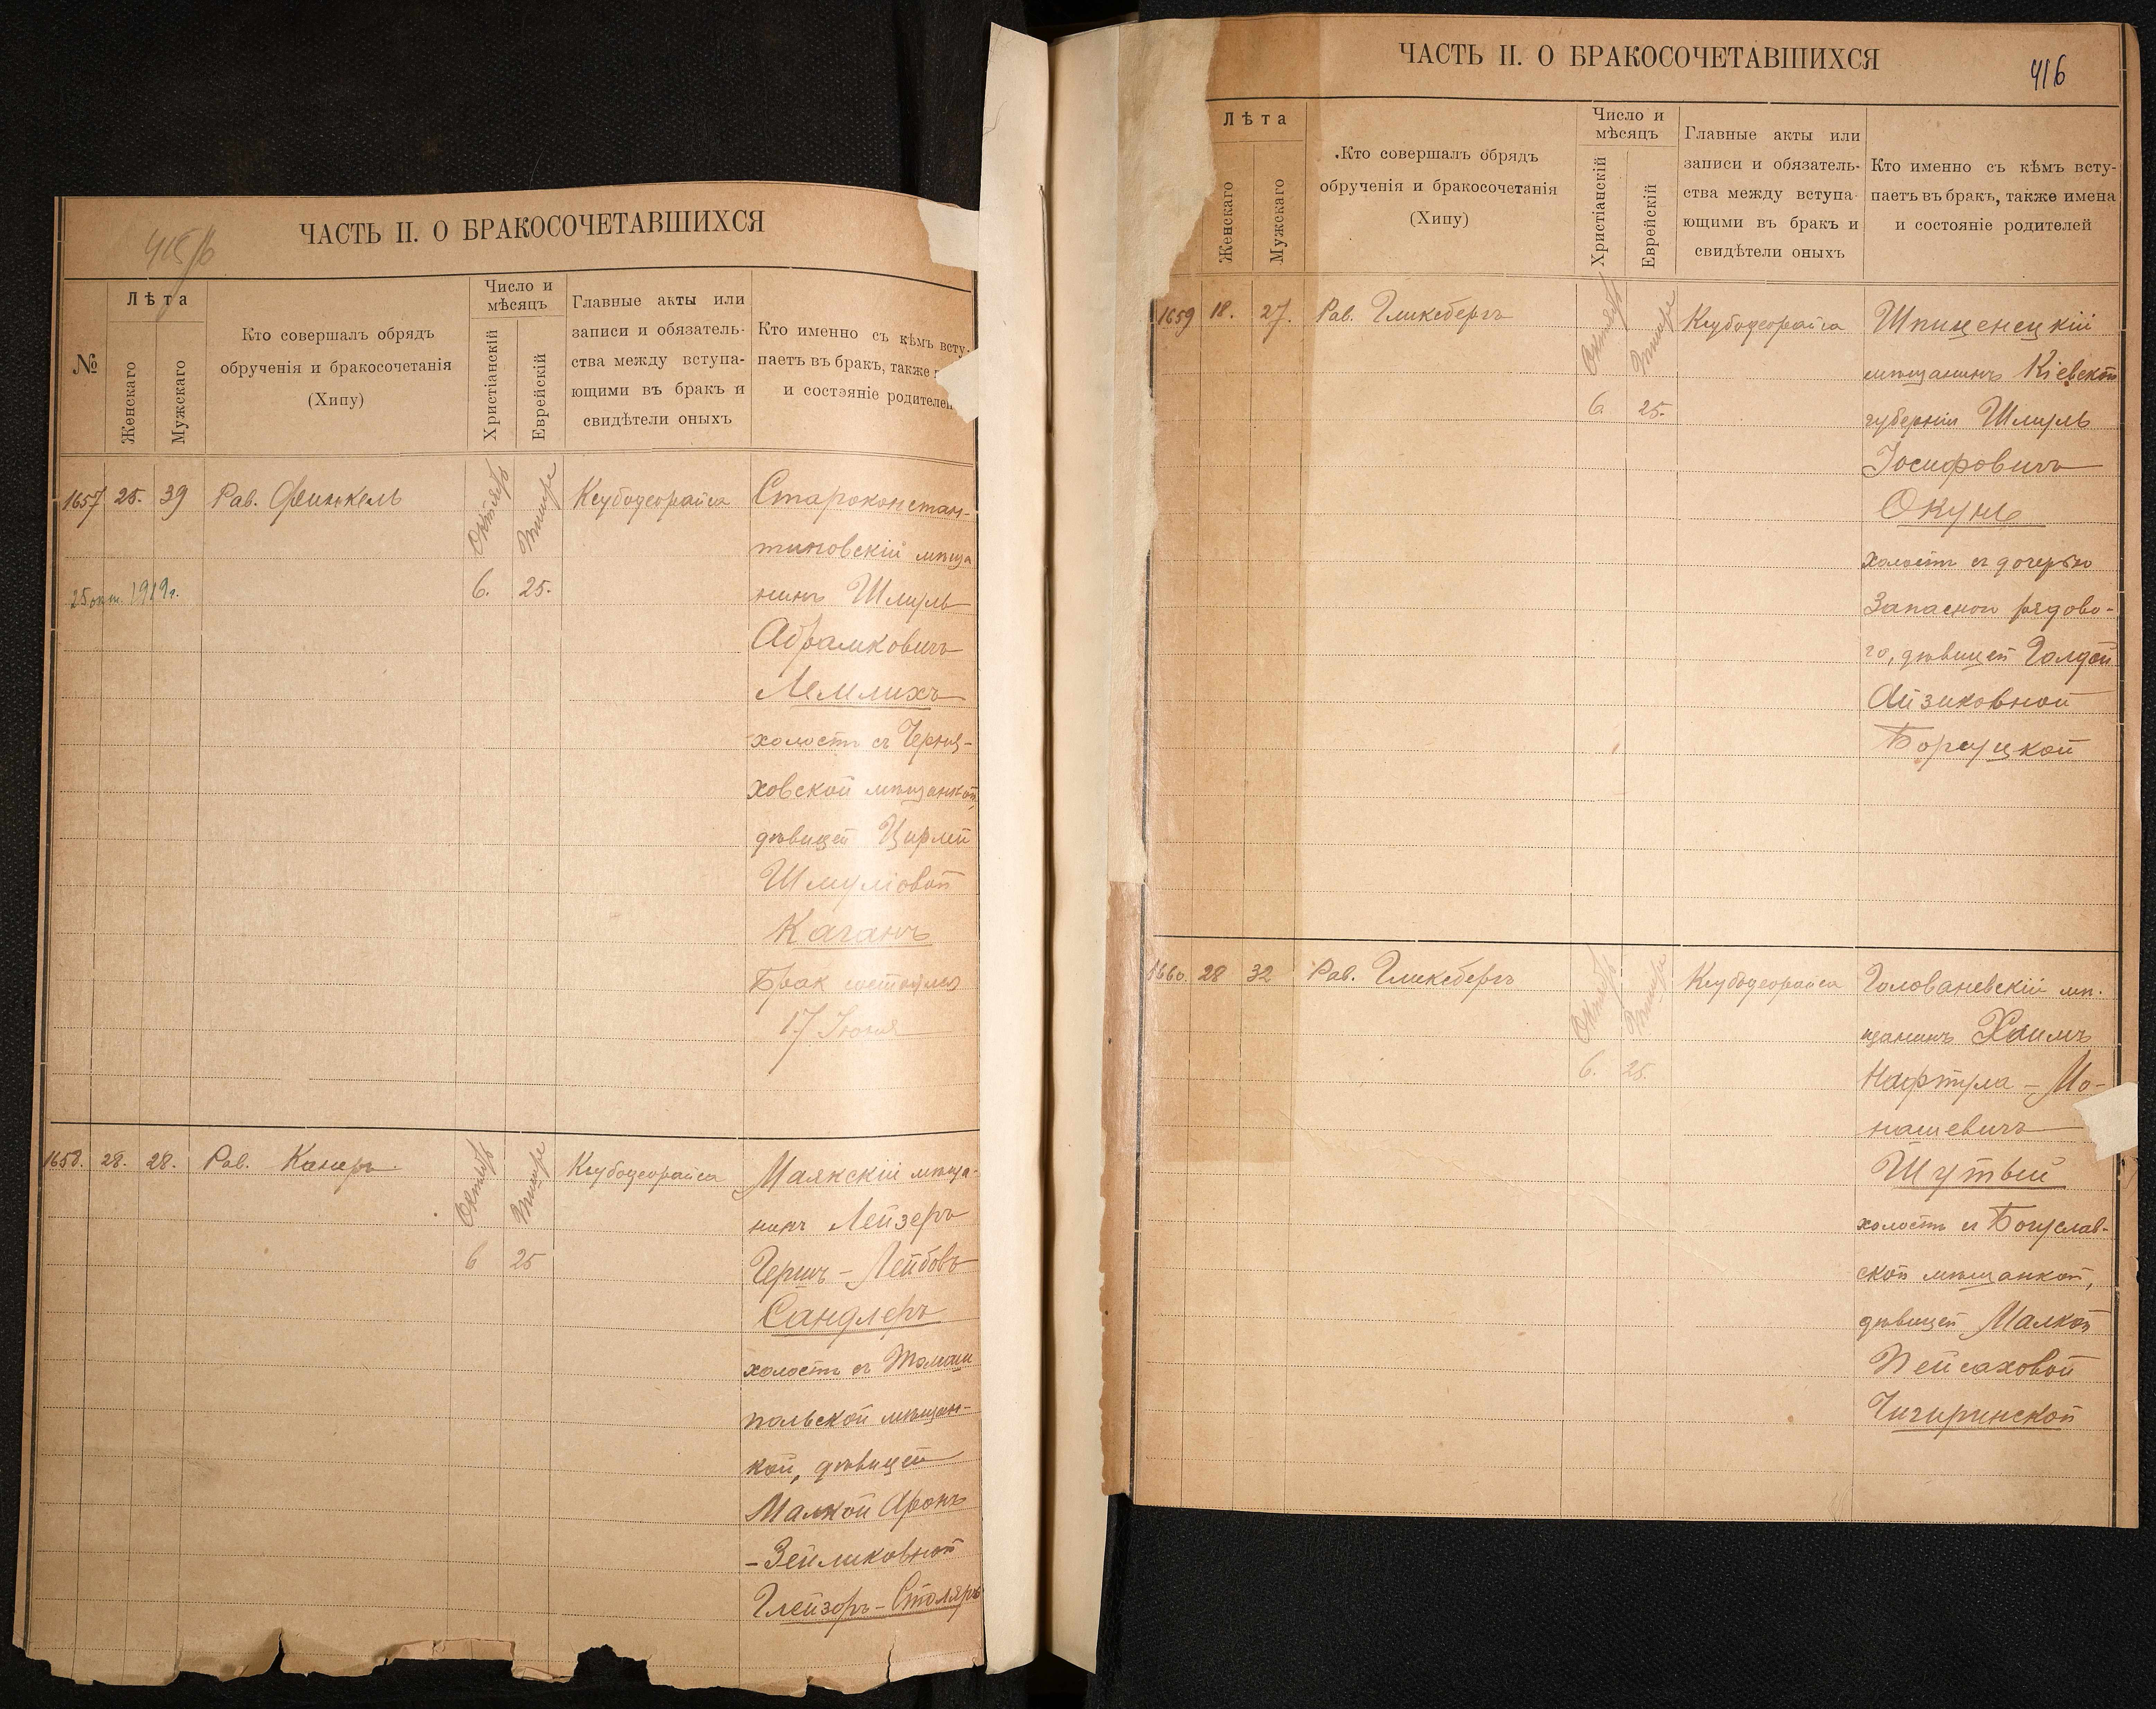 ЧАСТЬ II. О БРАКОСОЧЕТАВШИХСЯ
415/б
№
Лѣта
Женскаго
Мужскаго
Кто совершалъ обрядъ
обрученія и бракосочетанія
(Хипу)
Число и
мѣсяцъ
Христіанскій
Еврейскій
Главные акты или
записи и обязатель-
ства между вступа-
ющими въ бракъ и
свидѣтели оныхъ
Кто именно съ кѣмъ всту-
паетъ въ бракъ, также
и состояніе родителей
1657 25. 39 Рав. Финкель Октябрь Тишре Ксубоуорайса Староконстан-
тиновскій мѣща
25 окт. 1919г. 6. 25. нинъ Шмуль
Абрамковичъ
Лемлихъ
холостъ съ Черня-
ховской мѣщанкой,
дѣвицей Цирлей
Шмуліовой
Каганъ
Брак состоялся
17 Іюня
1658. 28. 28. Рав. Канеръ Октябрь Тишре Ксубоуорайса Маякскій мѣща-
нинъ Лейзеръ
6 25 Гершъ-Лейбовъ
Сандлеръ
холостъ съ Томаш
польской мѣщан-
кой, дѣвицей
Малкой Аронъ
-Зейликовной
Глейзоръ-Столяръ
ЧАСТЬ II. О БРАКОСОЧЕТАВШИХСЯ
416
Лѣта
Женскаго
Мужскаго
Кто совершалъ обрядъ
обрученія и бракосочетанія
(Хипу)
Число и
мѣсяцъ
Христіанскій
Еврейскій
Главные акты или
записи и обязатель-
ства между вступа-
ющими въ бракъ и
свидѣтели оныхъ
Кто именно съ кѣмъ всту-
паетъ въ бракъ, также имена
и состояніе родителей
1659 18. 27. Рав. Гликсбергъ Октябрь Тишре Ксубоуорайса Шпиченецкій
мѣщанинъ Кіевской
6 25. губерніи Шмуль
Іосифовичъ
Окунь
холостъ съ дочерью
Запасного рядово-
го, дѣвицей Голдой
Айзиковной
Борщцкой
1660. 28 32 Рав. Гликсбергъ Октябрь Тишре Ксубоуорайса Голованевскій мѣ-
щанинъ Хаимъ
6. 25. Нафтула-Мо-
нашевичъ
Шутый
холостъ съ Богуслав-
ской мѣщанкой,
дѣвицей Малкой
Пейсаховой
Чигиринской